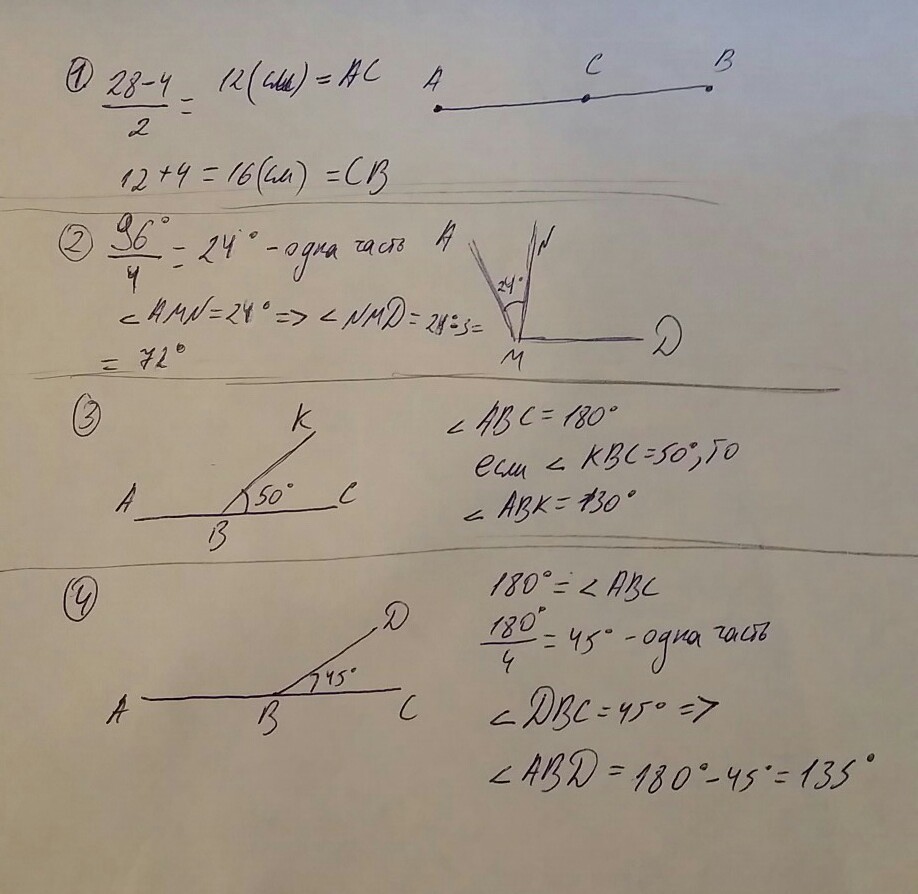 ① 28-4/2 = 12(см) = AC
A C B
12+4 = 16(см) = CB
② 96°/4 = 24° - одна часть
A N
24°
∠AMN=24° => ∠NMD = 24°·3=
M D
= 72°
③
K
A B C
50°
∠ABC = 180°
если ∠KBC=50°, то
∠ABK = 130°
④
D
45°
A B C
180° = ∠ABC
180°/4 = 45° - одна часть
∠DBC = 45° =>
∠ABD = 180°-45° = 135°